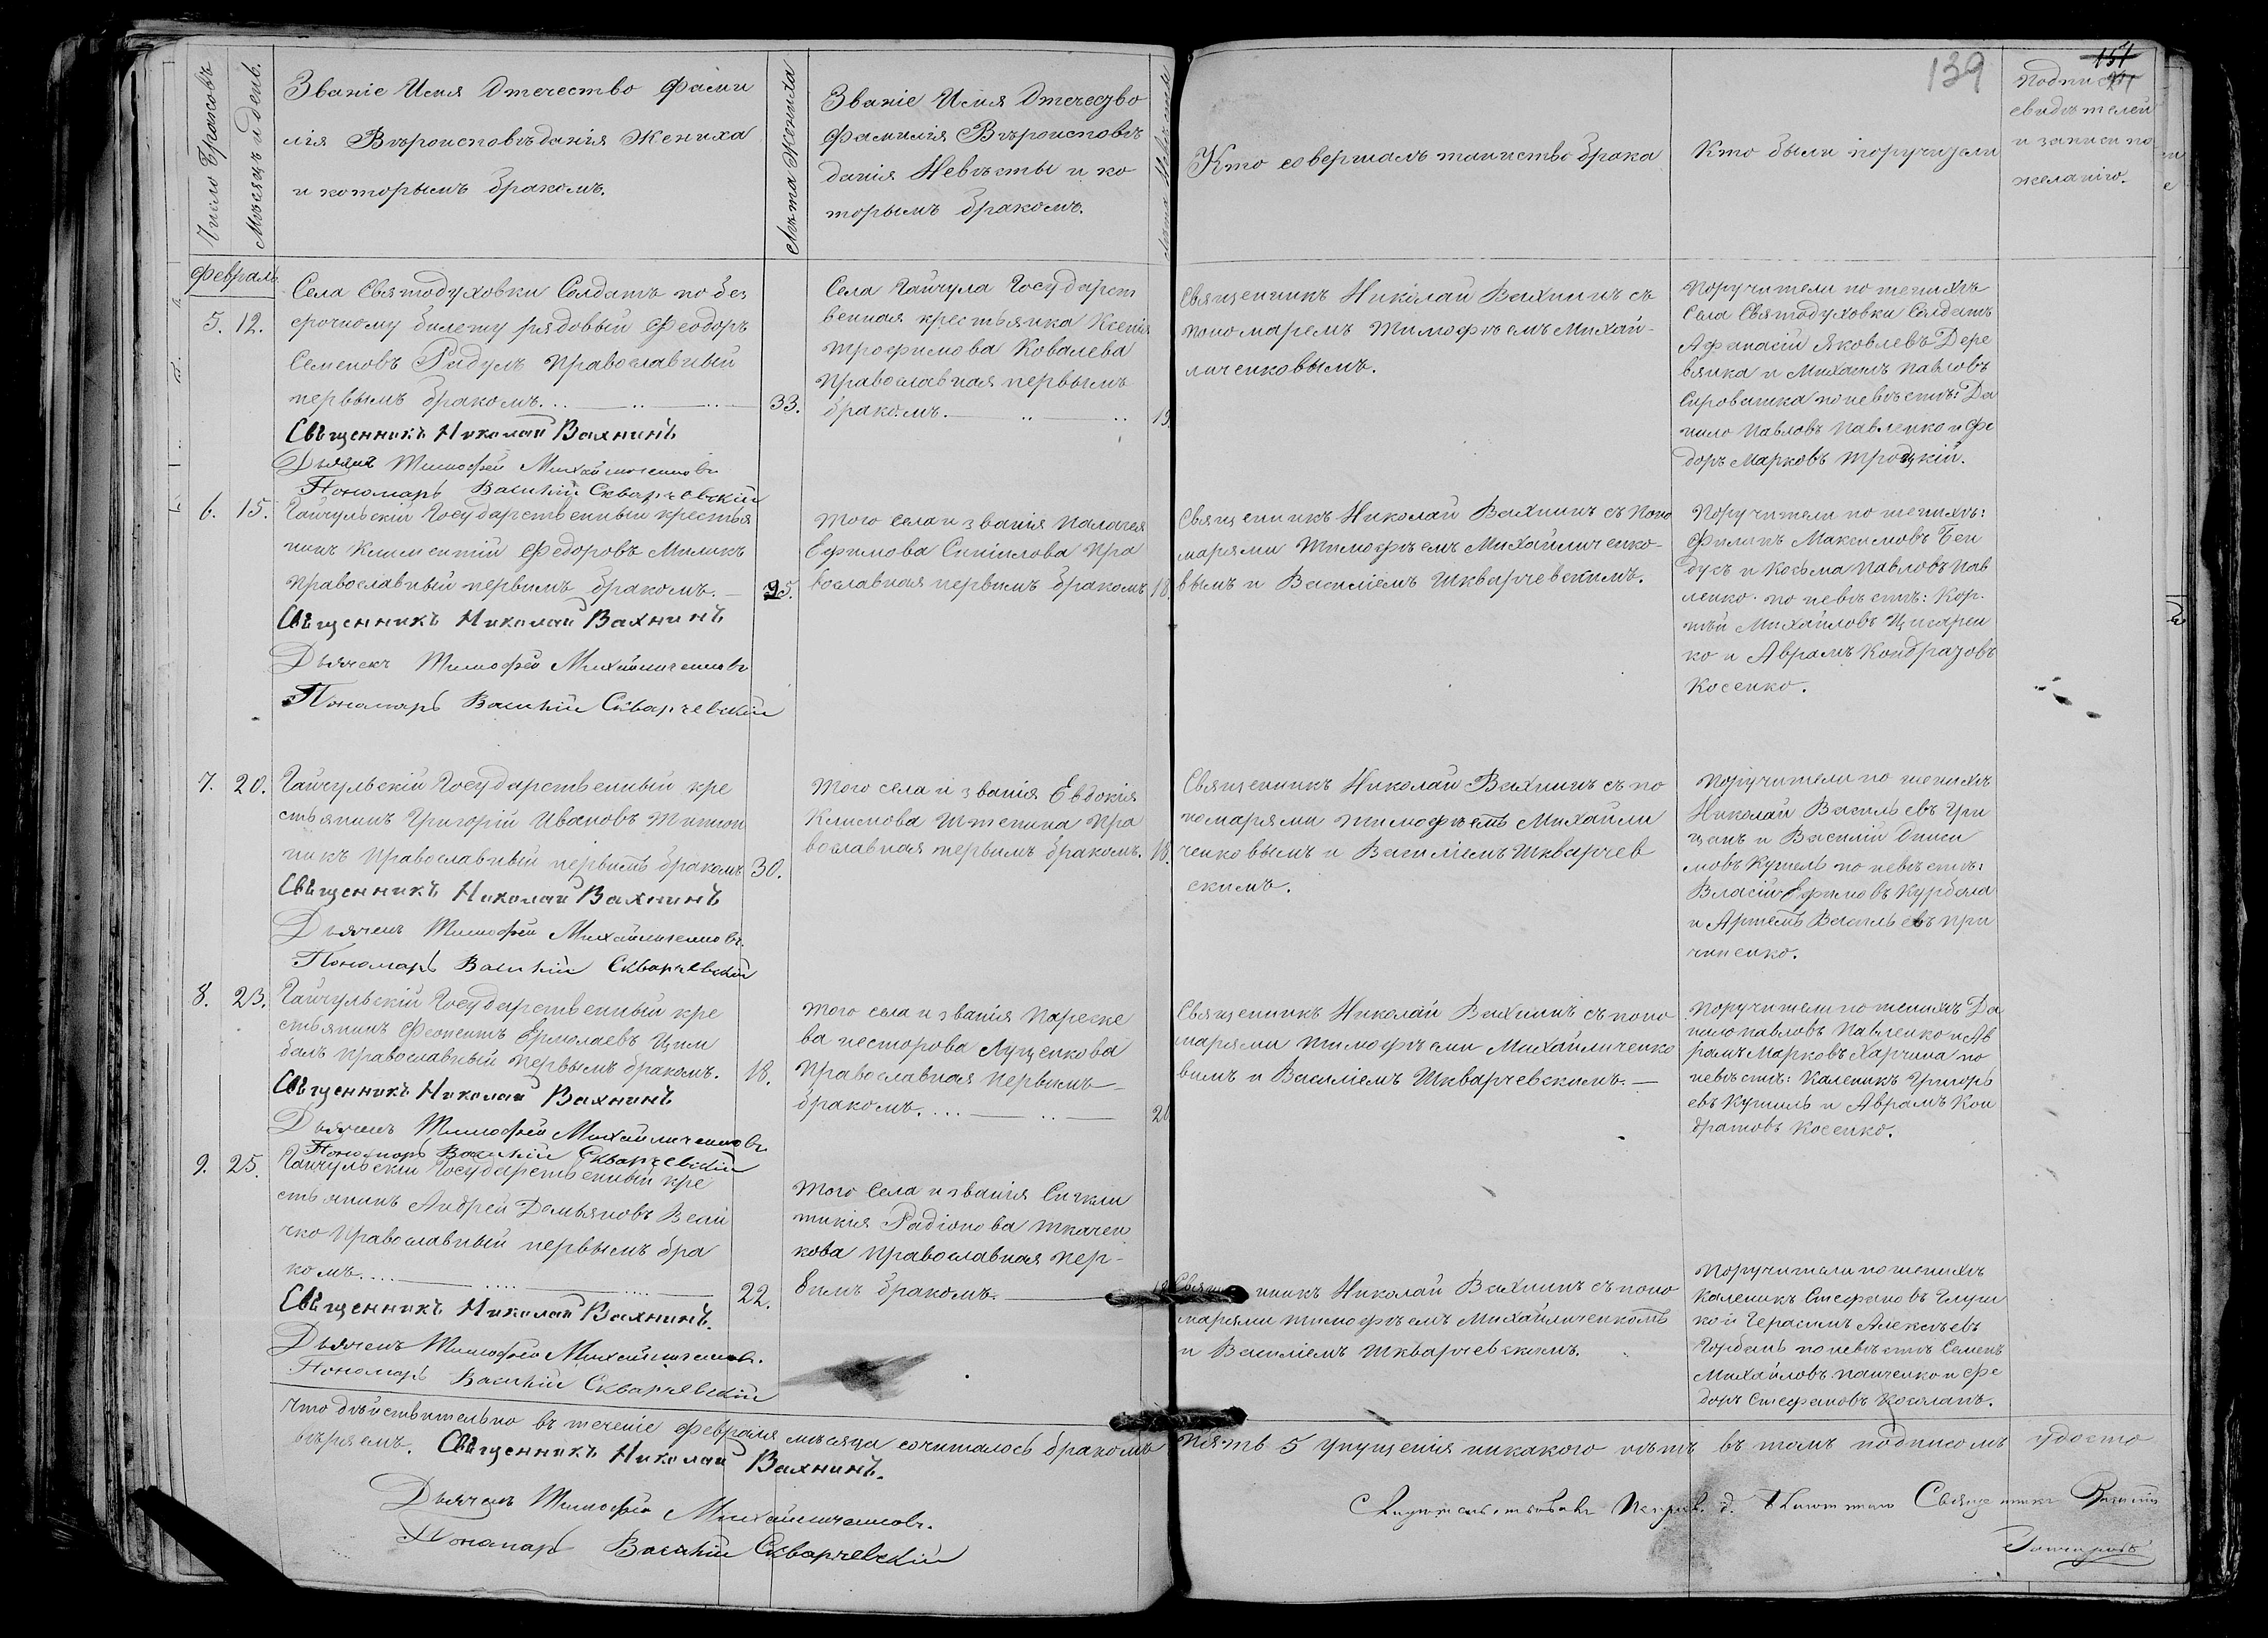 139
Число Браковъ
Мѣсяцъ и день.
Званіе Имя Отечество Фами
лія Вѣроисповѣданія Жениха
и которымъ бракомъ.
Лѣта Жениха
Званіе Имя Отечество
Фамилія Вѣроисповѣ
данія Невѣсты и ко
торымъ бракомъ.
Лѣта Невѣсты
Кто совершалъ таинство брака
Кто были поручители
Подписи
свидѣтелей
и записи по
желанію.
Февраль
5. 12.
Села Святодуховки Солдатъ по без
срочному билету рядовый Феодоръ
Семеновъ Радулъ православный
первымъ бракомъ.
33.
Священникъ Николай Вахнинъ
Дьячекъ Тимофей Михайличенковъ
Пономарь Василій Скварчевскій
Села Гайчула Государст
венная крестьянка Ксенія
Трофимова Ковалева
православная первымъ
бракомъ.
19.
Священникъ Николай Вахнинъ съ
пономаремъ Тимофѣемъ Михай-
личенковымъ.
Поручители по женихѣ
Села Святодуховки Солдатъ
Афанасій Яковлевъ Дере
вянка и Михаилъ Павловъ
Сироватка по невѣстѣ: Да
нило Павловъ Павленко и Фе
доръ Марковъ Троцкій.
6. 15.
Гайчульскій Государственный крестья
нинъ Климентій Федоровъ Миликъ
православный первымъ бракомъ.
25.
Священникъ Николай Вахнинъ
Дьячекъ Тимофей Михайличенковъ
Пономарь Василій Скварчевскій
Того села и званія Палагея
Ефимова Скпілова пра
вославная первымъ бракомъ
18.
Священникъ Николай Вахнинъ съ Поно
марями Тимофѣемъ Михайличенко-
вымъ и Василіемъ Шкварчевскимъ.
Поручители по женихѣ:
Филипъ Максимовъ Бон
дусъ и Косьма Павловъ Пав
ленко. по невѣстѣ: Кор-
нѣй Михайловъ Цисарен
ко и Аврамъ Кондратовъ
Косенко.
7. 20.
Гайчульскій Государственный кре
стьянинъ Григорій Ивановъ Тютюн
никъ православный первымъ бракомъ
30.
Священникъ Николай Вахнинъ
Дьячекъ Тимофей Михайличенковъ.
Пономарь Василій Скварчевскій
Того села и званія Евдокія
Климова Штепина пра
вославная первымъ бракомъ.
18.
Священникъ Николай Вахнинъ съ по
номарями Тимофѣемъ Михайли
ченковымъ и Василіемъ Шкварчев
скимъ.
Поручители по женихѣ
Николай Васильевъ Гри
цанъ и Василій Аниси
мовъ Кужель по невѣстѣ:
Власій Ефимовъ Курбала
и Артемъ Васильевъ При
чиненко.
8. 23.
Гайчульскій Государственный кре
стьянинъ Феопентъ Ермолаевъ Цим
балъ православный первымъ бракомъ.
18.
Священникъ Николай Вахнинъ
Дьячекъ Тимофей Михайличенковъ
Пономарь Василій Скварчевскій
Того села и званія Параске
ва Несторова Лущенкова
православная первымъ
бракомъ.
20
Священникъ Николай Вахнинъ съ поно
марями Тимофѣеми Михайличенко
вымъ и Василіемъ Шкварчевскимъ.
Поручители по женихѣ Да
нило Павловъ Павленко и Ав
рамъ Марковъ Харчина по
невѣстѣ: Каленикъ Григорь
евъ Кужиль и Аврамъ Кон
дратовъ Косенко.
9. 25.
Гайчульскій Государственный кре
стьянинъ Андрей Демьяновъ Вели
чко православный первымъ бра
комъ.
22.
Священникъ Николай Вахнинъ.
Дьячекъ Тимофей Михайличенковъ.
Пономарь Василій Скварчевскій
Того Села и званія Сигкли
тикія Радіонова Ткачен
кова православная пер-
вымъ бракомъ.
Священникъ Николай Вахнинъ съ поно
марями Тимофѣемъ Михайличенкомъ
и Василіемъ Шкварчевскимъ.
Поручители по женихѣ
Каленикъ Стефановъ Глуш
кой Герасимъ Алексѣевъ
Горбань по невѣстѣ Семенъ
Михайловъ Панченко и Фе
доръ Стефановъ Косолапъ.
Что дѣйствительно въ теченіе февраля мѣсяца сочиталось бракомъ пять 5 упущенія никакого нѣтъ въ томъ подписомъ удосто
вѣряемъ. Священникъ Николай Вахнинъ.
Дьячекъ Тимофей Михайличенковъ.
Пономарь Василій Скварчевскій
Священникъ